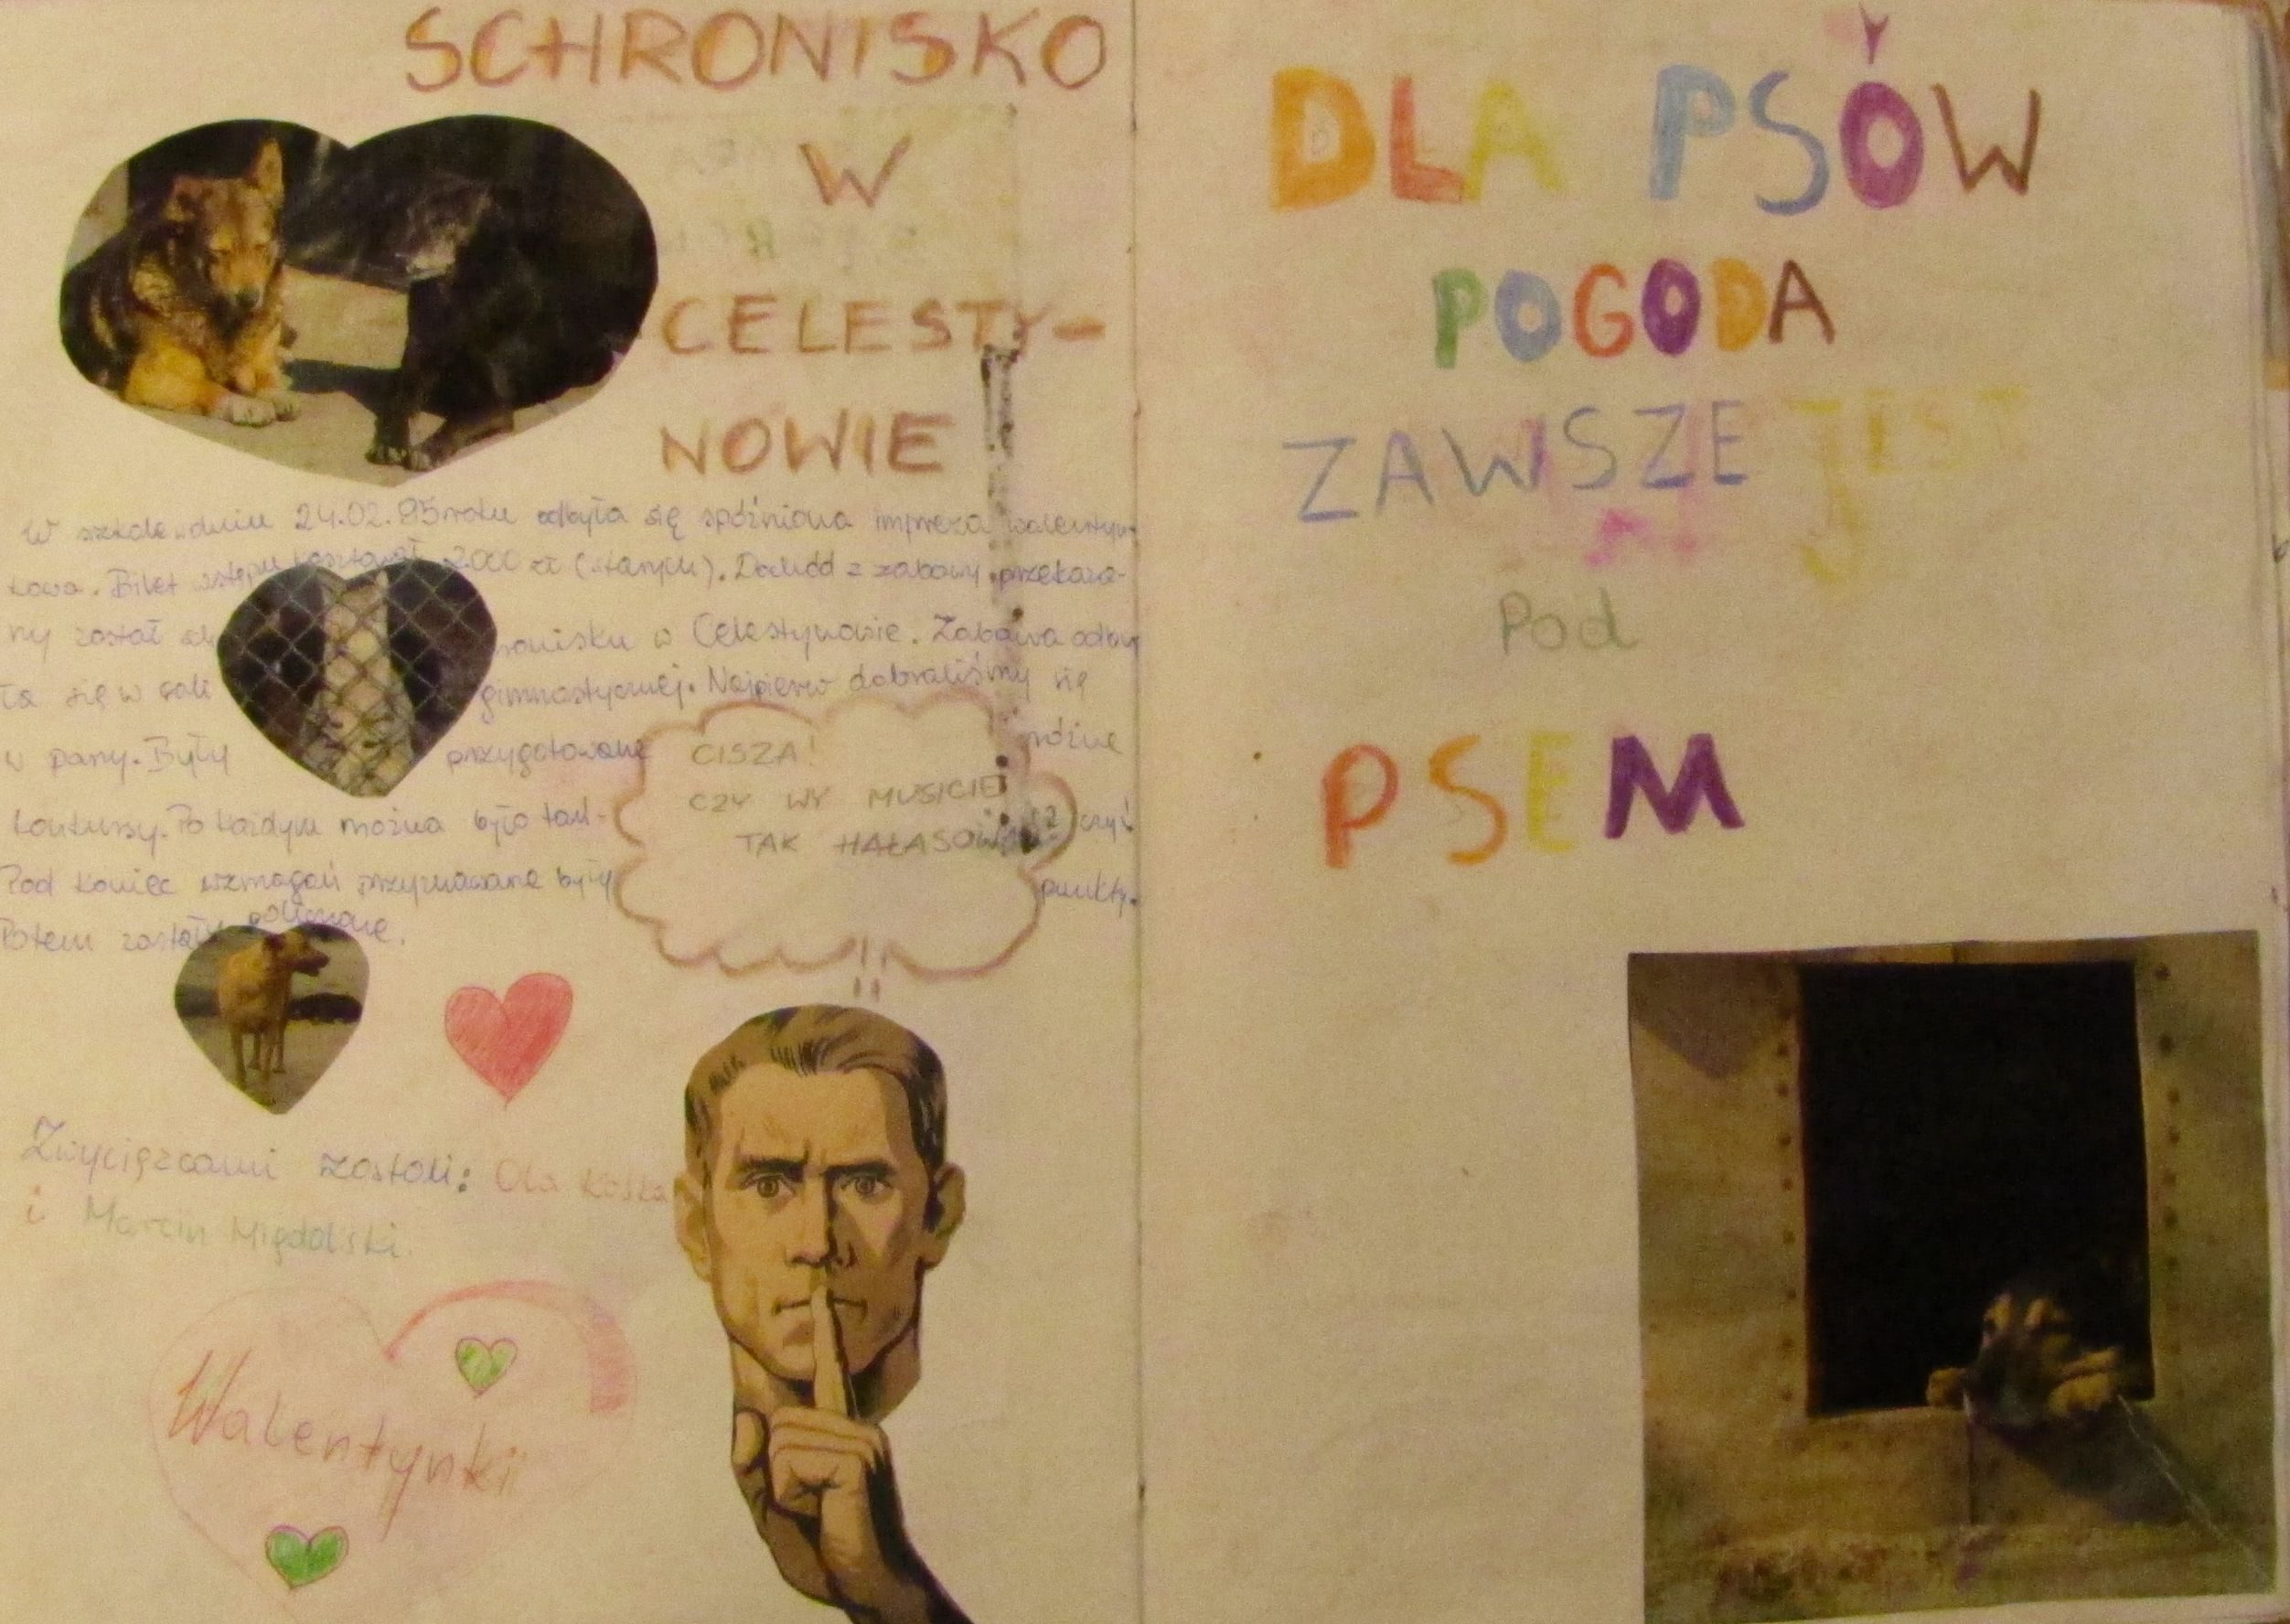 SCHRONISKO
W
CELESTY-
NOWIE
W szkole w dniu 24.02.95 roku odbyła się spóźniona impreza walentyn-
kowa. Bilet wstępu kosztował 2000 zł (starych). Dochód z zabawy przekaza-
ny został schronisku w Celestynowie. Zabawa odby
ła się w sali gimnastycznej. Najpierw dobraliśmy się
w pary. Były przygotowane różne
konkursy. Po każdym można było tań- czyć
Pod koniec wzmagań przyznawane były punkty.
Potem zostały policzone.
CISZA!
CZY WY MUSICIE
TAK HAŁASOWA
Zwycięzcami zostali: Ola
i Marcin Migdalski.
Walentynki
DLA PSÓW
POGODA
ZAWSZE JEST
Pod
PSEM